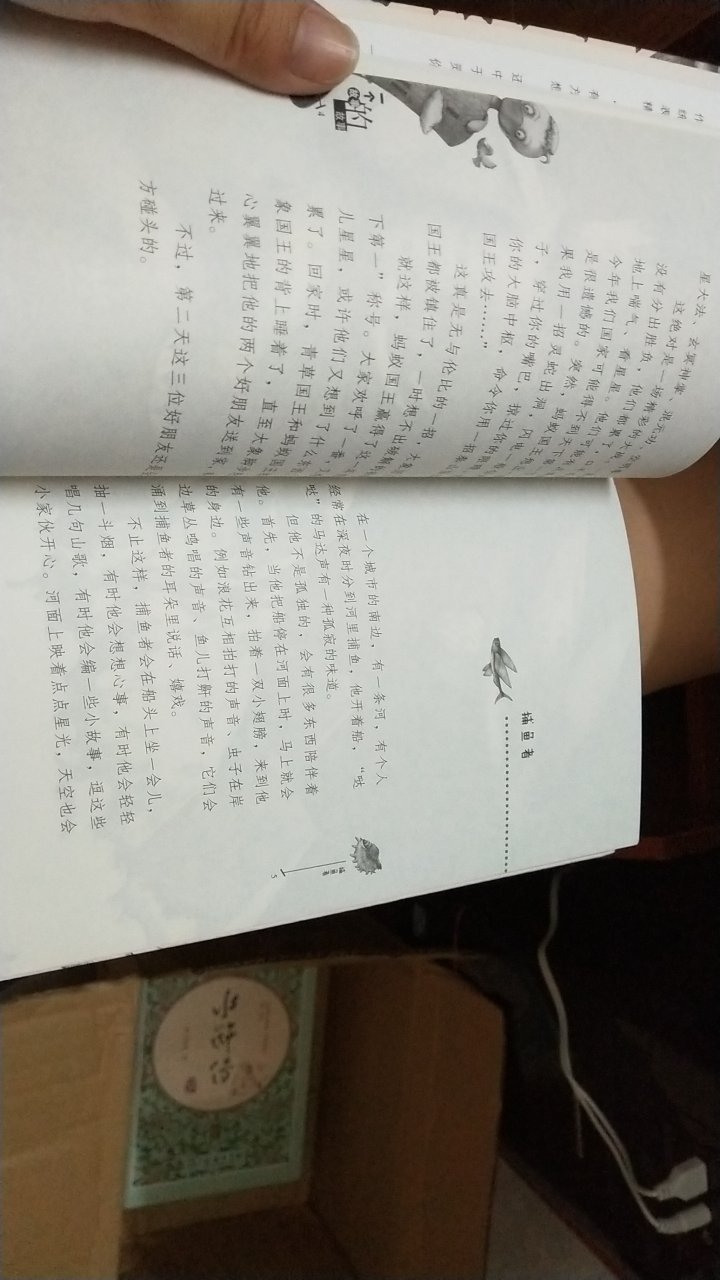 星大法、玄冥神掌、混元功
这绝对是一场精彩的大
没有分出胜负，他们都累了
地上喘气、看星星。他们可能在
今年我们国家可能得不到天下第
是很遗憾的。突然，蚂蚁国王
果我用一招灵蛇出洞，闪电
子，穿过你的嘴巴，掠过你的
你的大脑中枢，命令你用一招
国王攻去……”
这真是无与伦比的一招，大象
国王都被镇住了，一时想不出
就这样，蚂蚁国王赢得了这一
下第一”称号。大家欢呼了一番，
儿星星，或许他们又想到了什么
累了。回家时，青草国王和蚂蚁国王
象国王的背上睡着了，直至大象
心翼翼地把他的两个好朋友送到家，
过来。
不过，第二天这三位好朋友还是
方碰头的。
一个
的
故事
4
捕鱼者
在一个城市的南边，有一条河，有个人
经常在深夜时分到河里捕鱼，他开着船，“哒
哒”的马达声有一种孤寂的味道。
但他不是孤独的，会有很多东西陪伴着
他。首先，当他把船停在河面上时，马上就会
有一些声音钻出来，拍着一双小翅膀，来到他
的身边。例如浪花互相拍打的声音、虫子在岸
边草丛鸣唱的声音、鱼儿打鼾的声音，它们会
涌到捕鱼者的耳朵里说话、嬉戏。
不止这样，捕鱼者会在船头上坐一会儿，
抽一斗烟，有时他会想想心事，有时他会轻轻
唱几句山歌，有时他会编一些小故事，逗这些
小家伙开心。河面上映着点点星光，天空也会
捕鱼者
5